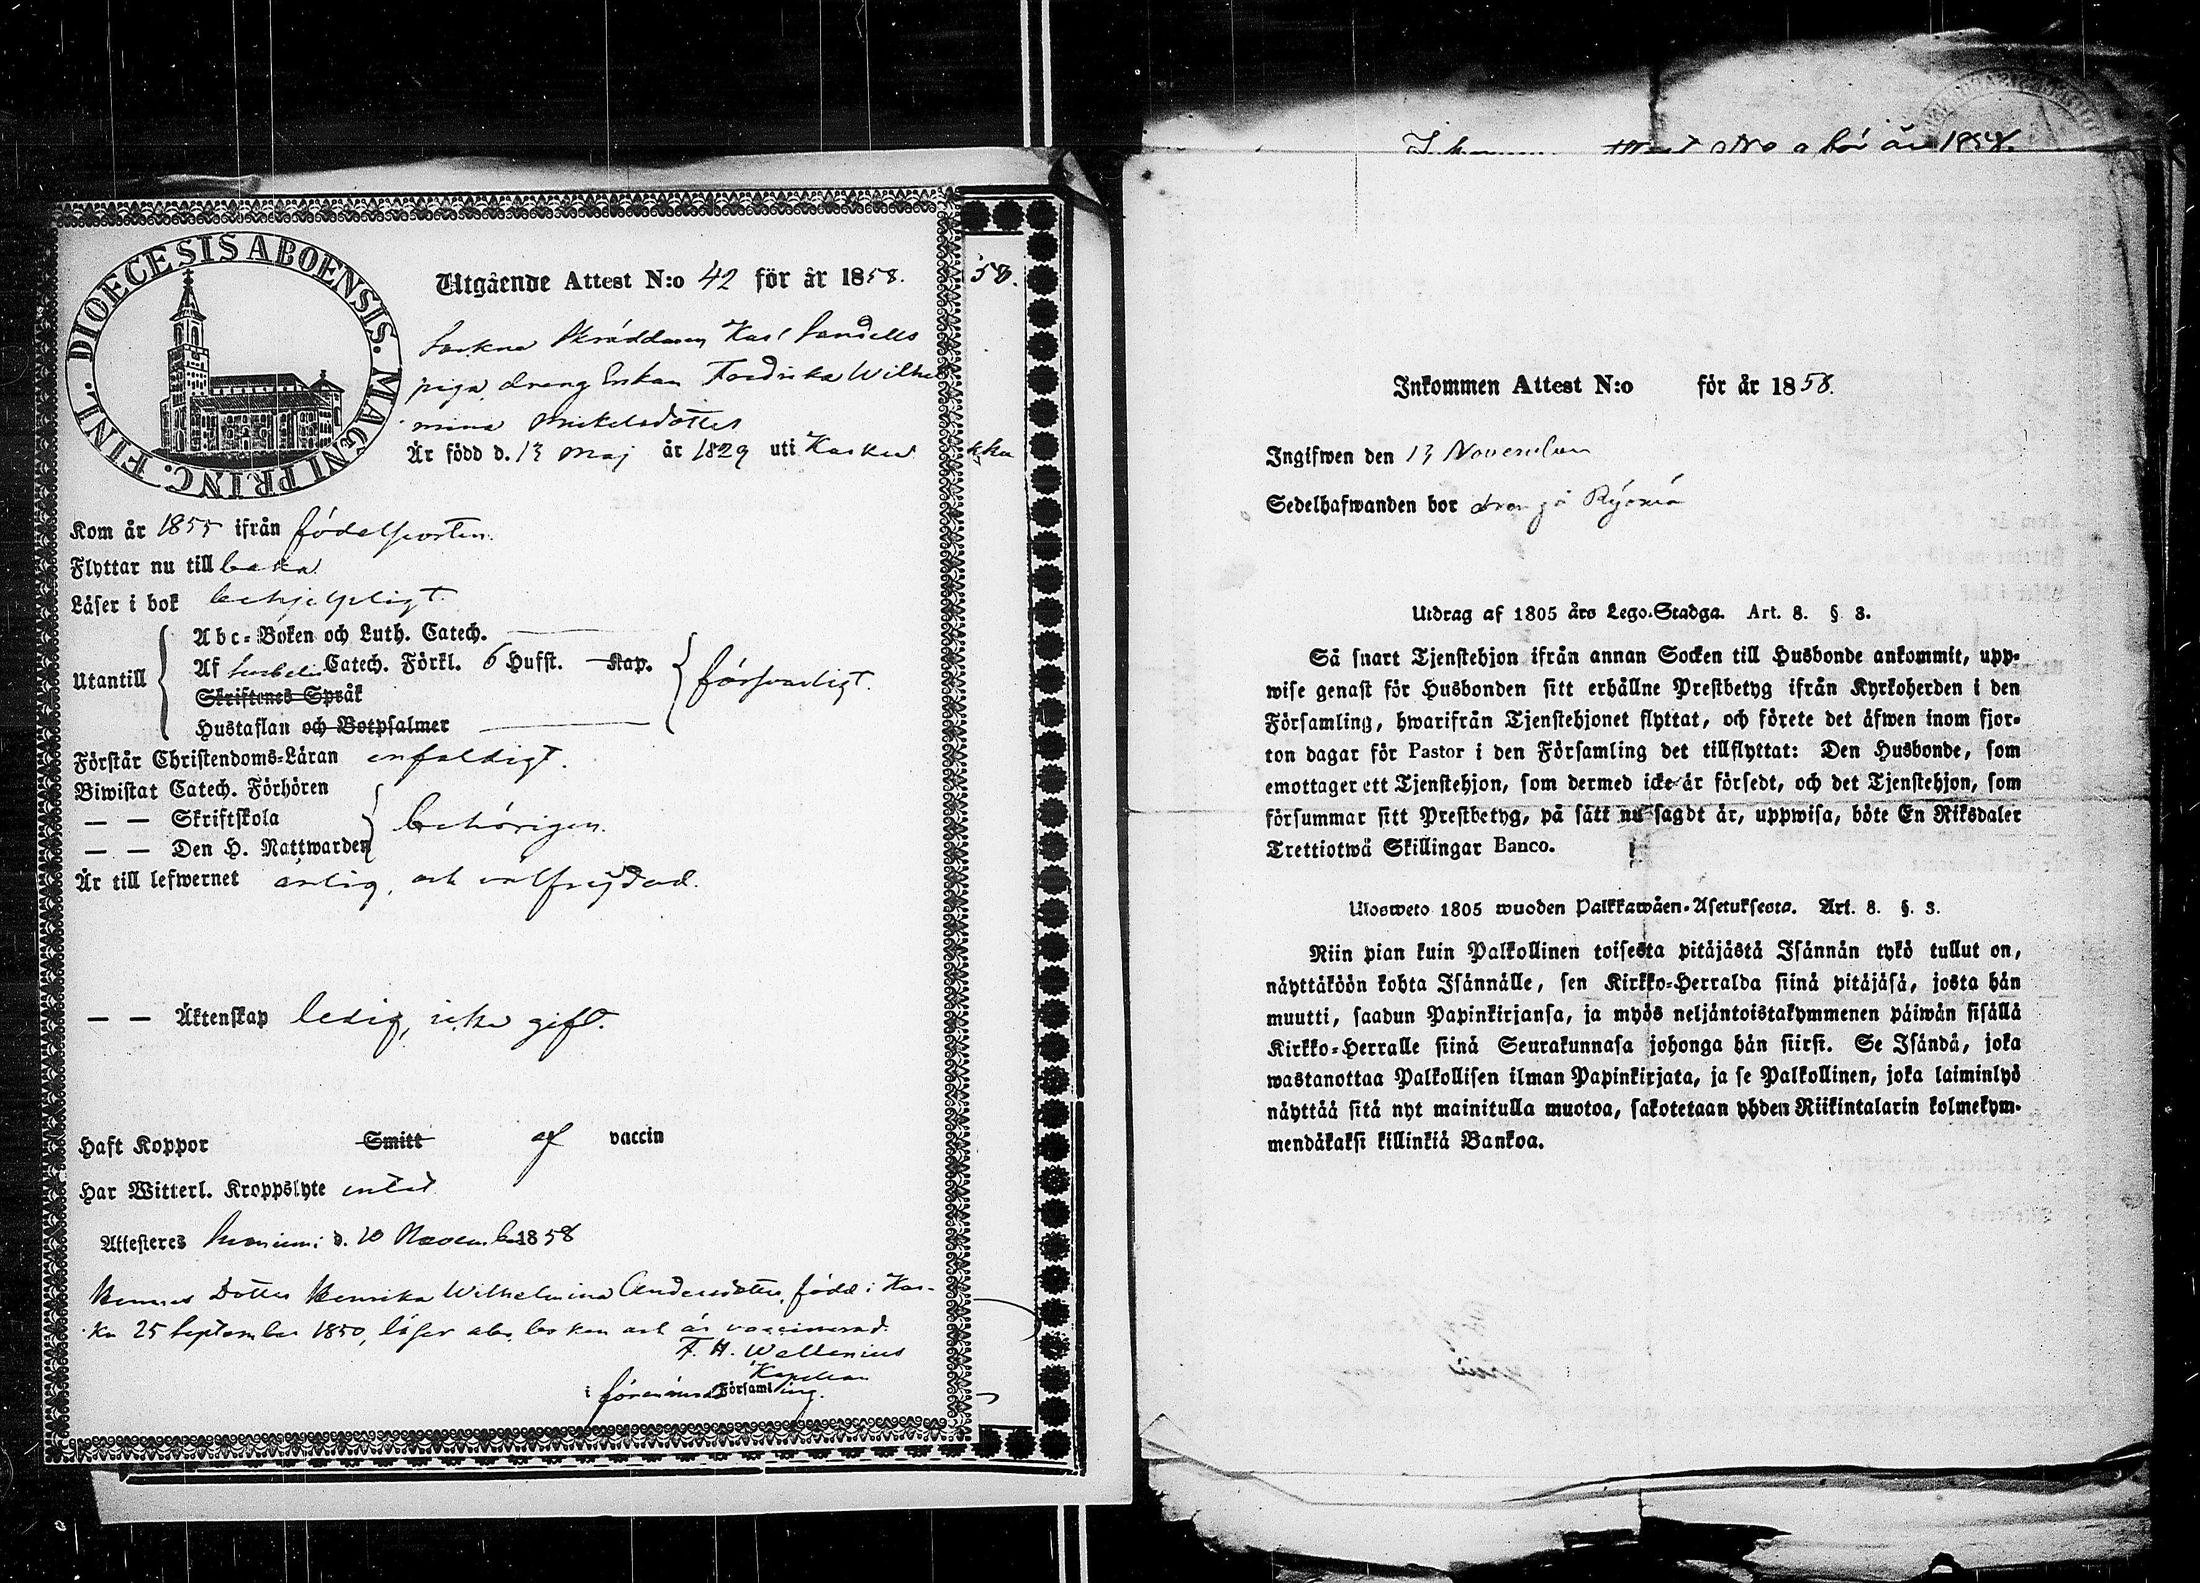 DIOECESIS ABOENSIS. MAGNI PRINC. FINL.
Utgående Attest N:o 42 för år 1858.
58.
Sockne Skräddaren Karl Sandells
piga, dräng Enkan Fredrika Wilhel
mina Mickelsdotter
Är född d. 13 Maj år 1829 uti Karku
Kom år 1855 ifrån födelseorten.
Flyttar nu till baka
Läser i bok behjelpligt.
Utantill
Abc-Boken och Luth. Catech.
Af Catech. Förkl. 6 Hufst. Kap.
försvarligt.
Skriftenes Språk
Hustaflan och Botpsalmer
Förstår Christendoms-Läran enfaldigt.
Biwistat Catech. Förhören
— — Skriftskola
behörigen.
— — Den H. Nattwarden
Är till lefwernet ärlig, och välfrejdad.
— — Äktenskap ledig, icke gift.
Haft Koppor Smitt af vaccin
Har Witterl. Kroppslyte intet
Attesteres Suoniemi d. 10 November 1858
Hennes Dotter Henrika Wilhelmina Andersdotter, född i Kar-
ku 25 September 1850, läser abc boken och är vaccinerad.
F. H. Wallenius
Kapellan
i förenämnde Församling.
Attest No för år 1858.
Inkommen Attest N:o för år 1858.
Ingifwen den 13 November
Sedelhafwanden bor
Utdrag af 1805 års Lego-Stadga. Art. 8. § 3.
Så snart Tjenstehjon ifrån annan Socken till Husbonde ankommit, upp-
wise genast för Husbonden sitt erhållne Prestbetyg ifrån Kyrkoherden i den
Församling, hwarifrån Tjenstehjonet flyttat, och förete det äfwen inom fjor-
ton dagar för Pastor i den Församling det tillflyttat: Den Husbonde, som
emottager ett Tjenstehjon, som dermed icke är försedt, och det Tjenstehjon, som
försummar sitt Prestbetyg, på sätt nu sagdt är, uppwisa, böte En Riksdaler
Trettiotwå Skillingar Banco.
Ulosweto 1805 wuoden Palkkawäen-Asetuksesta. Art. 8. §. 3.
Niin pian kuin Palkollinen toisesta pitäjästä Isännän tykö tullut on,
näyttäköön kohta Isännälle, sen Kirkko-Herralda siinä pitäjäsä, josta hän
muutti, saadun Papinkirjansa, ja myös neljäntoistakymmenen päiwän sisällä
Kirkko-Herralle siinä Seurakunnasa johonga hän siirsi. Se Isändä, joka
wastanottaa Palkollisen ilman Papinkirjata, ja se Palkollinen, joka laiminlyö
näyttää sitä nyt mainitulla muotoa, sakotetaan yhden Riikintalarin kolmekym-
mendäkaksi killinkiä Bankoa.